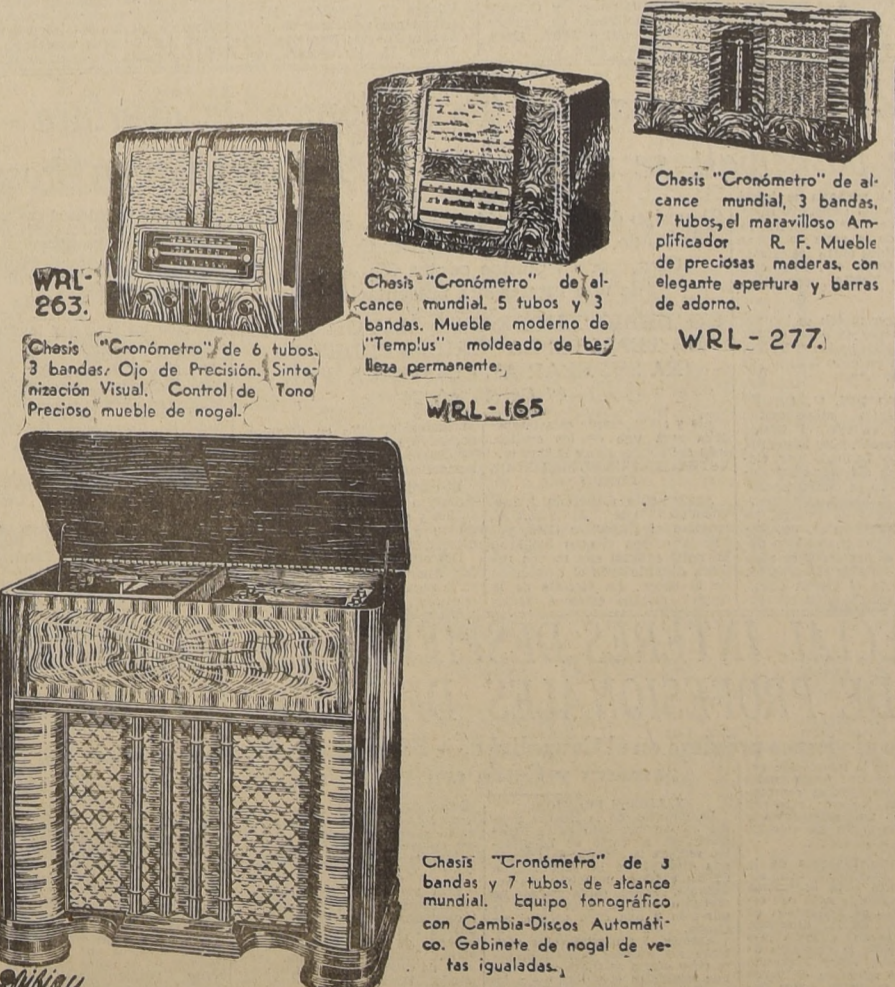 WRL-
263.
Chasis "Cronómetro" de 6 tubos.
3 bandas. Ojo de Precisión. Sinto-
nización Visual. Control de Tono
Precioso mueble de nogal.
Chasis "Cronómetro" de al-
cance mundial. 5 tubos y 3
bandas. Mueble moderno de
"Templus" moldeado de be-
lleza permanente.
WRL-165
Chasis "Cronómetro" de al-
cance mundial, 3 bandas,
7 tubos, el maravilloso Am-
plificador R. F. Mueble
de preciosas maderas, con
elegante apertura y barras
de adorno.
WRL-277.
Chasis "Cronómetro" de 3
bandas y 7 tubos, de alcance
mundial. Equipo fonográfico
con Cambia-Discos Automáti-
co. Gabinete de nogal de ve-
tas igualadas.